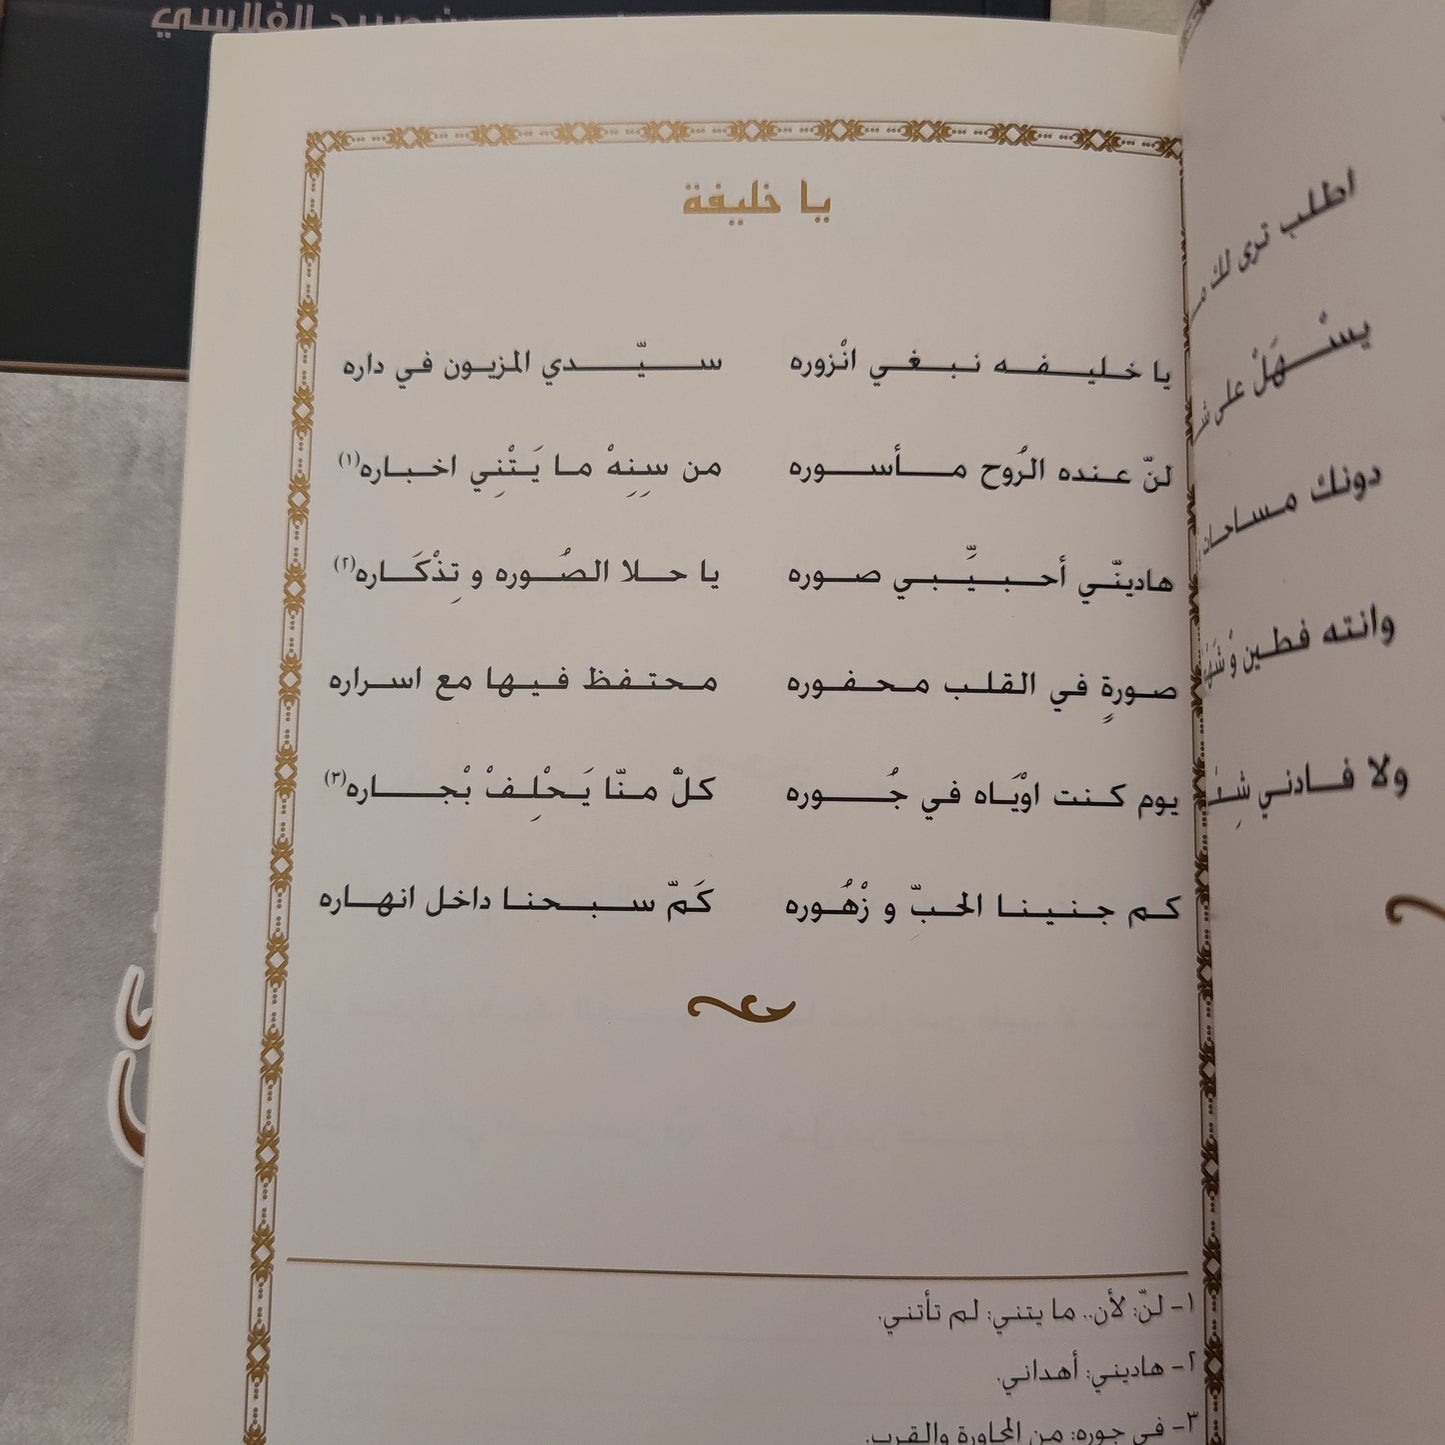 الفلاسي
يا خليفة
يا خليفه نبغي انْزوره سيّدي المزيون في داره
لنّ عنده الرُوح مأسوره من سِنِهْ ما يَتْنِي اخباره(١)
هادينّي أحبيّبي صوره يا حلا الصُوره و تِذْكَاره(٢)
صورةٍ في القلب محفوره محتفظ فيها مع اسراره
يوم كنت اوْيَاه في جُوره كلٌ منّا يَحْلِفْ بْجاره(٣)
كم جنينا الحبّ و زْهُوره كَمّ سبحنا داخل انهاره
١- لنّ: لأن.. ما يتني: لم تأتني.
٢- هاديني: أهداني.
٣- في جوره: من المجاورة والقرب.
اطلب ترى لك
يسْتهَلْ على
دونك
وانته فطين
ولا فادني